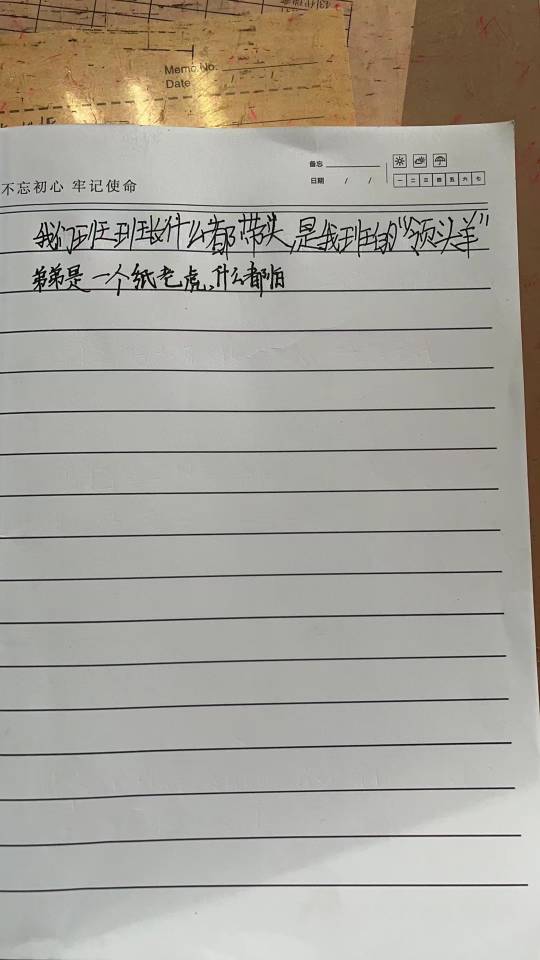 Memo No.
Date
备忘
不忘初心 牢记使命
日期 / /
一 二 三 四 五 六 七
我们班王班长什么都带头,是我班的“领头羊”
弟弟是一个纸老虎,什么都怕